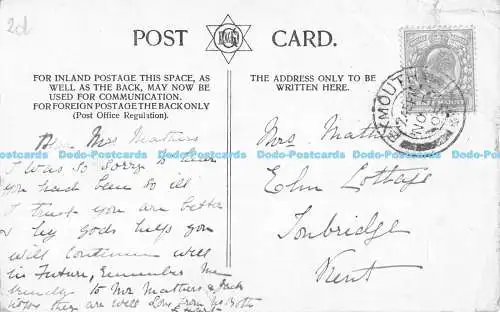 2d
POST CARD.
FOR INLAND POSTAGE THIS SPACE, AS
WELL AS THE BACK, MAY NOW BE
USED FOR COMMUNICATION.
FOR FOREIGN POSTAGE THE BACK ONLY
(Post Office Regulation).
THE ADDRESS ONLY TO BE
WRITTEN HERE.
Dear Mrs Mathers
I was so sorry to hear
you had been so ill
I trust you are better
& by gods help you
will continue well
in Future, Remember me
kindly to Mr Mathers & Jack
hope they are well Love from us Both
Mrs Mathers
Elm Cottage
Tonbridge
Kent
Dodo-Postcards Dodo-Postcards Dodo-Postcards Dodo-Postcards Dodo-Postcards Dodo-Postcards